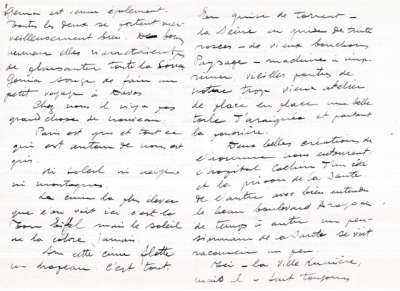 Genia est venue également
toutes les deux se portent mer-
veilleusement bien. De bonne
elles n'arrêtaient
de plaisanter toute la soirée
Genia songe de faire un
petit voyage à Davos
Chez nous il n'y a pas
grand chose de nouveau.
Paris est gris et tout ce
qui est autour de nous est
gris.
Ni soleil ni neige
ni montagnes.
La cime la plus élevée
que l'on voit ici c'est la
Tour Eifel mais le soleil
ne la colore jamais.
Sur cette cime flotte
un drapeau c'est tout.
En guise de torrent –
la Seine en guise de truite
roses – de vieux bouchons
Paysage – machines à
vieilles parties de
notre trop vieux atelier
de place en place une belle
toile d'araignée et partout
la poussière.
Deux belles créations de
l'homme nous entourent
l'hopital Cochin d'un côté
et la prison de la Santé
de l'autre avec bien entendu
le beau boulevard Arago.
de temps à autre un pen-
sionnaire de la Santé se voit
raccourcir un peu.
Ici – la Ville Lumière,
toujours